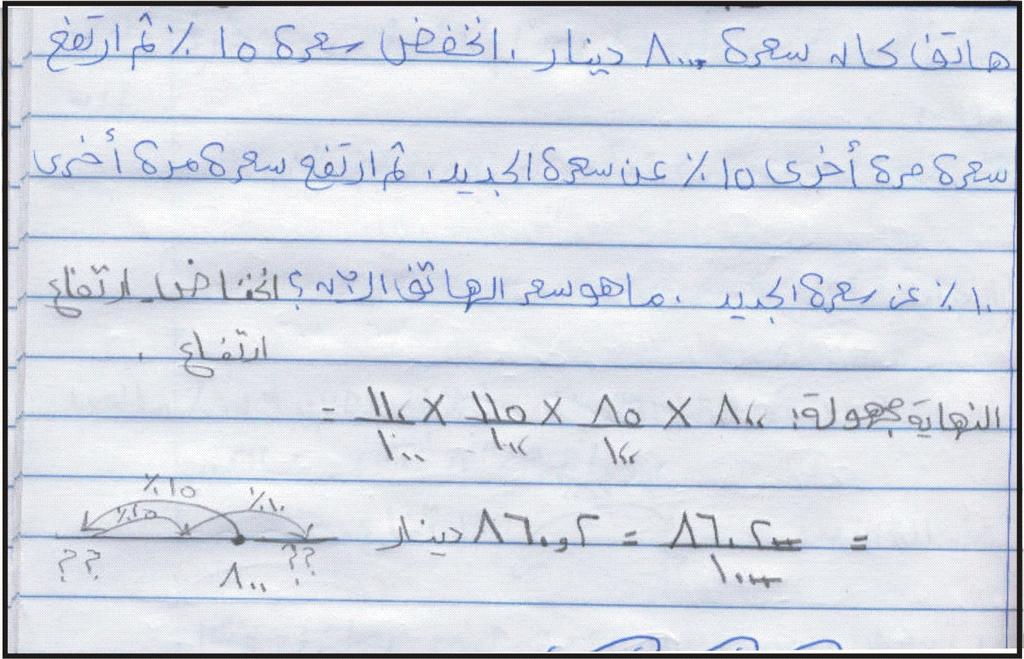 هاتف كان سعره ٨٠٠ دينار . انخفض سعره ١٥ ٪ ثم ارتفع
سعره مرة أخرى ١٥ ٪ عن سعره الجديد . ثم ارتفع سعره مرة أخرى
١٠ ٪ عن سعره الجديد . ما هو سعر الهاتف الآن ؟ انخفاض ـ ارتفاع
ارتفاع .
النهاية مجهولة: ٨٠٠ × ٨٥/١٠٠ × ١١٥/١٠٠ × ١١٠/١٠٠ =
= ٨٦٠٢٠٠٠/١٠٠٠٠ = ٨٦٠و٢ دينار
٪١٥ ٪١٠
٪١٥
؟؟ ٨٠٠ ؟؟